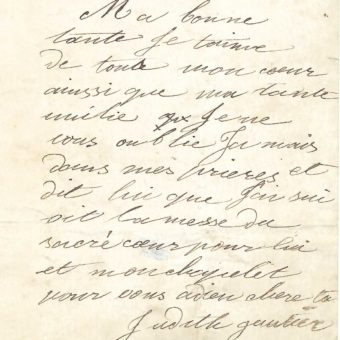 Ma bonne
tante je taime
de tout mon cœur
aussi que ma tante
émilie je ne
vous oublie jamais
dans mes prieres et
dit lui que j'ai sui
oit la messe du
sacré cœur pour lui
et mon chapelet
pour vous adieu chere ta
Judith gautier